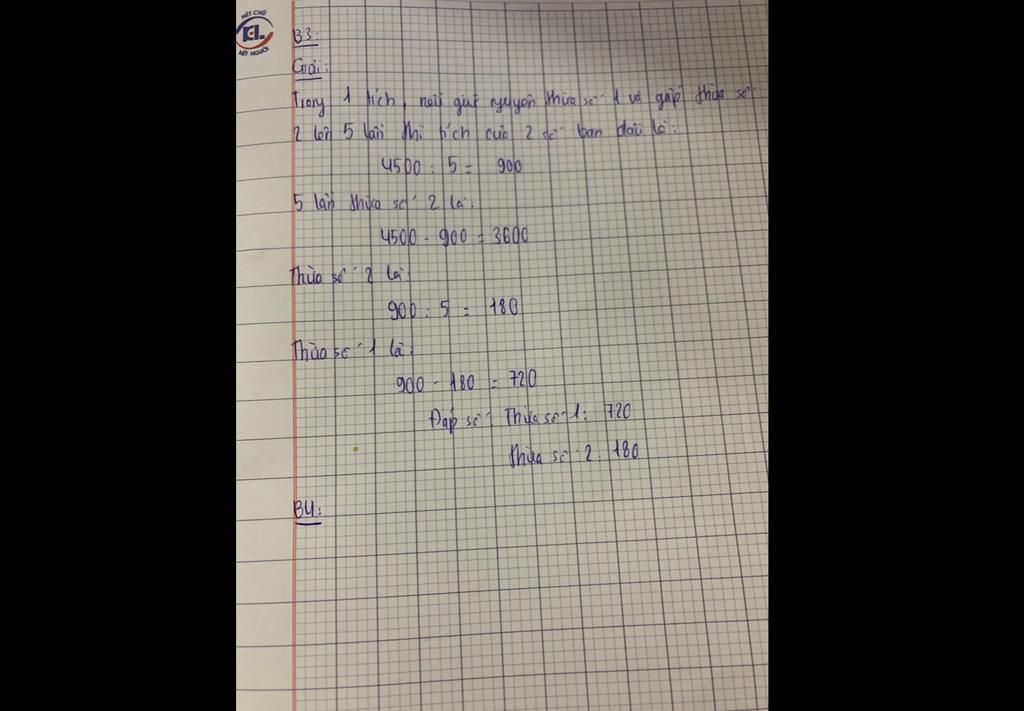 NÉT CHỮ
NÉT NGƯỜI
B3:
Giải:
Trong 1 tích, nếu giữ nguyên thừa số 1 và gấp thừa số
2 lên 5 lần thì tích của 2 số ban đầu là:
4500 : 5 = 900
5 lần thừa số 2 là:
4500 - 900 = 3600
Thừa số 2 là:
900 : 5 = 180
Thừa số 1 là:
900 - 180 = 720
Đáp số: Thừa số 1: 720
Thừa số 2: 180
B4: